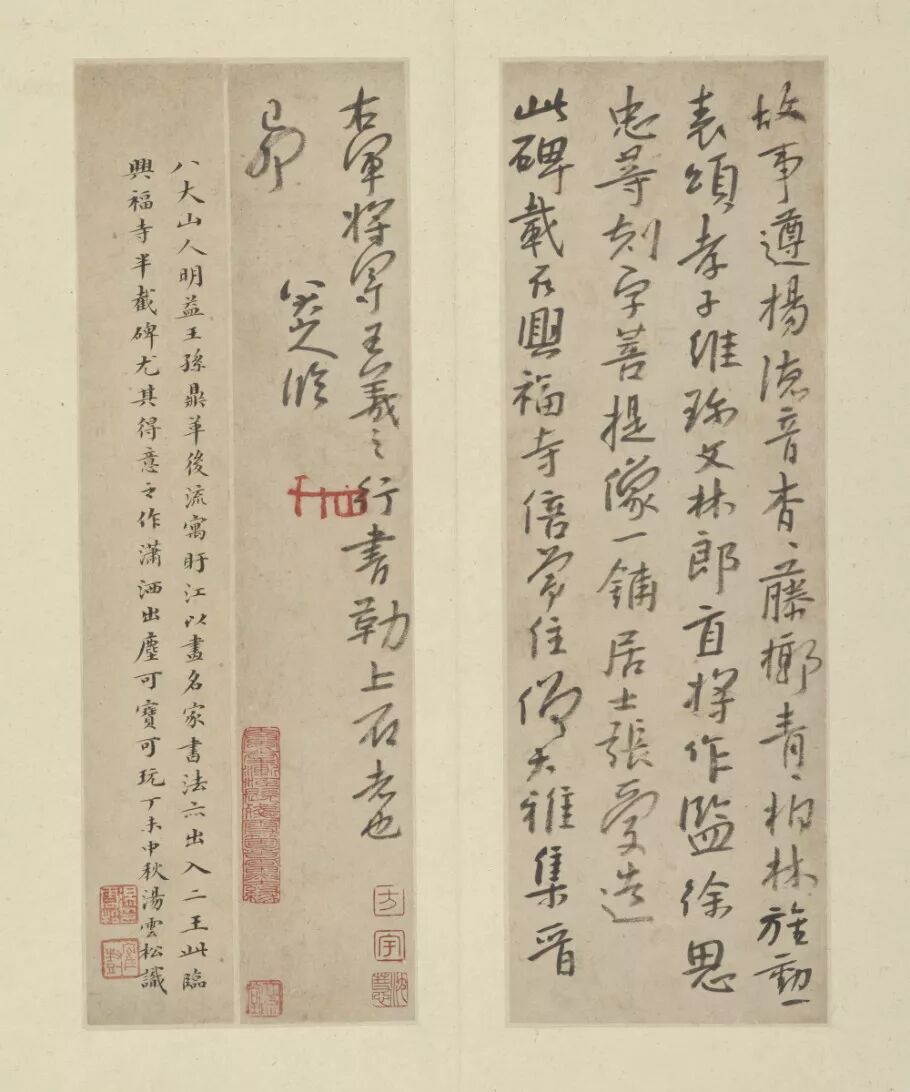 故事遵揚德音杳〻藤擲青〻柏林旌勳一
表頌孝子維珎文林郎直將作監徐思
忠等刻字菩提像一鋪居士張愛造
此碑載在興福寺倍常住僧大雅集晉
右軍將軍王羲之行書勒上石者也
己卯
八大人臨
八大山人明益王孫鼎革後流寓盱江以畫名家書法亦出入二王此臨
興福寺半截碑尤其得意之作瀟洒出塵可寶可玩丁未中秋湯雲松識
方
宇